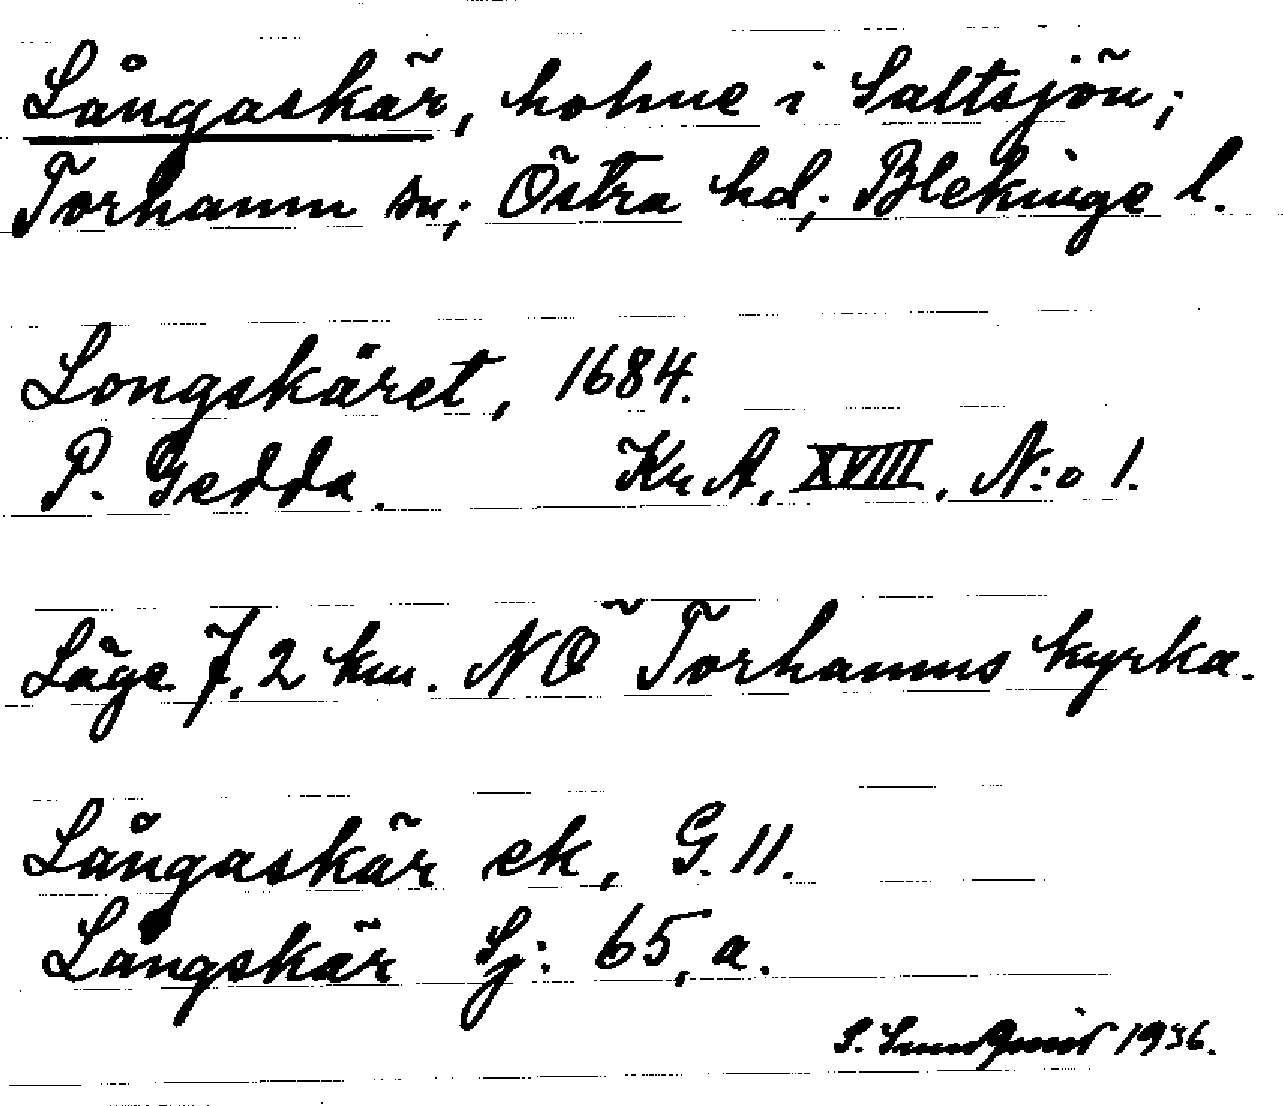 Långaskär, holme i Saltsjön;
Torhamn sn; Östra hd; Blekinge l.
Longskäret, 1684.
P. Gedda. Kr A, XVIII, N:o 1.
Läge 7,2 km. NO Torhamns kyrka.
Långaskär ek, G. 11.
Långskär Sj: 65, a.
S. 1936.